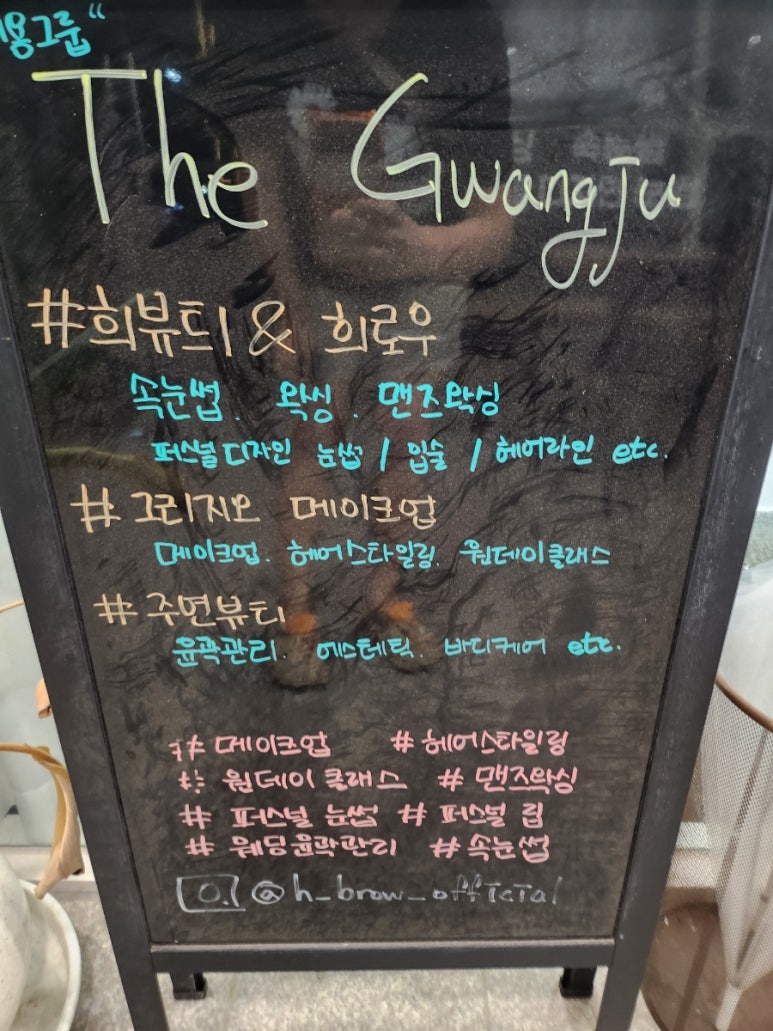 용그룹"
The Gwangju
#희뷰티 & 희로우
속눈썹. 왁싱. 맨즈왁싱
퍼스널디자인 눈썹 / 입술 / 헤어라인 etc.
# 그리지오 메이크업
메이크업. 헤어스타일링. 원데이클래스
# 주연뷰티
윤곽관리. 에스테틱. 바디케어 etc.
# 메이크업 # 헤어스타일링
# 원데이 클래스 # 맨즈왁싱
# 퍼스널 눈썹 # 퍼스널 립
# 웨딩윤곽관리 # 속눈썹
@h_brow_official